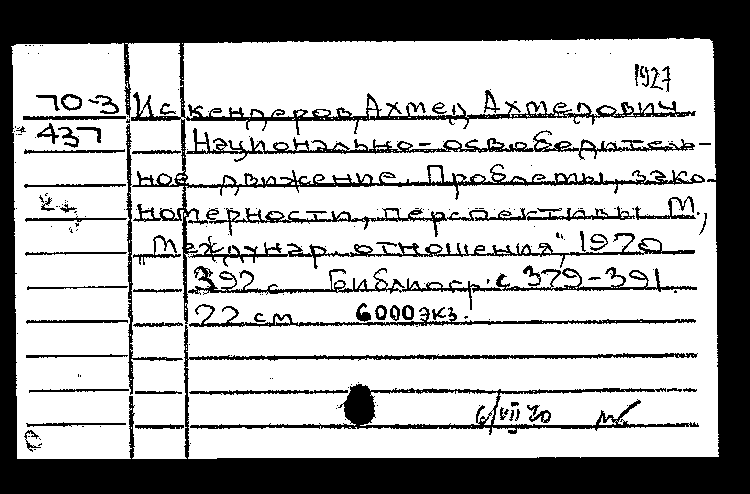 1927
70-3 Искендеров, Ахмед Ахмедович
437 Национально-освободитель-
ное движение. Проблемы, зако-
номерности, перспективы М.,
„Междунар. отношения", 1970
392 с Библиогр: с 379-391.
22 см 6000 экз.
6/VII 70